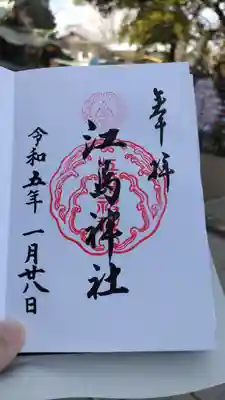 奉拝
江島神社
令和五年 一月廿八日